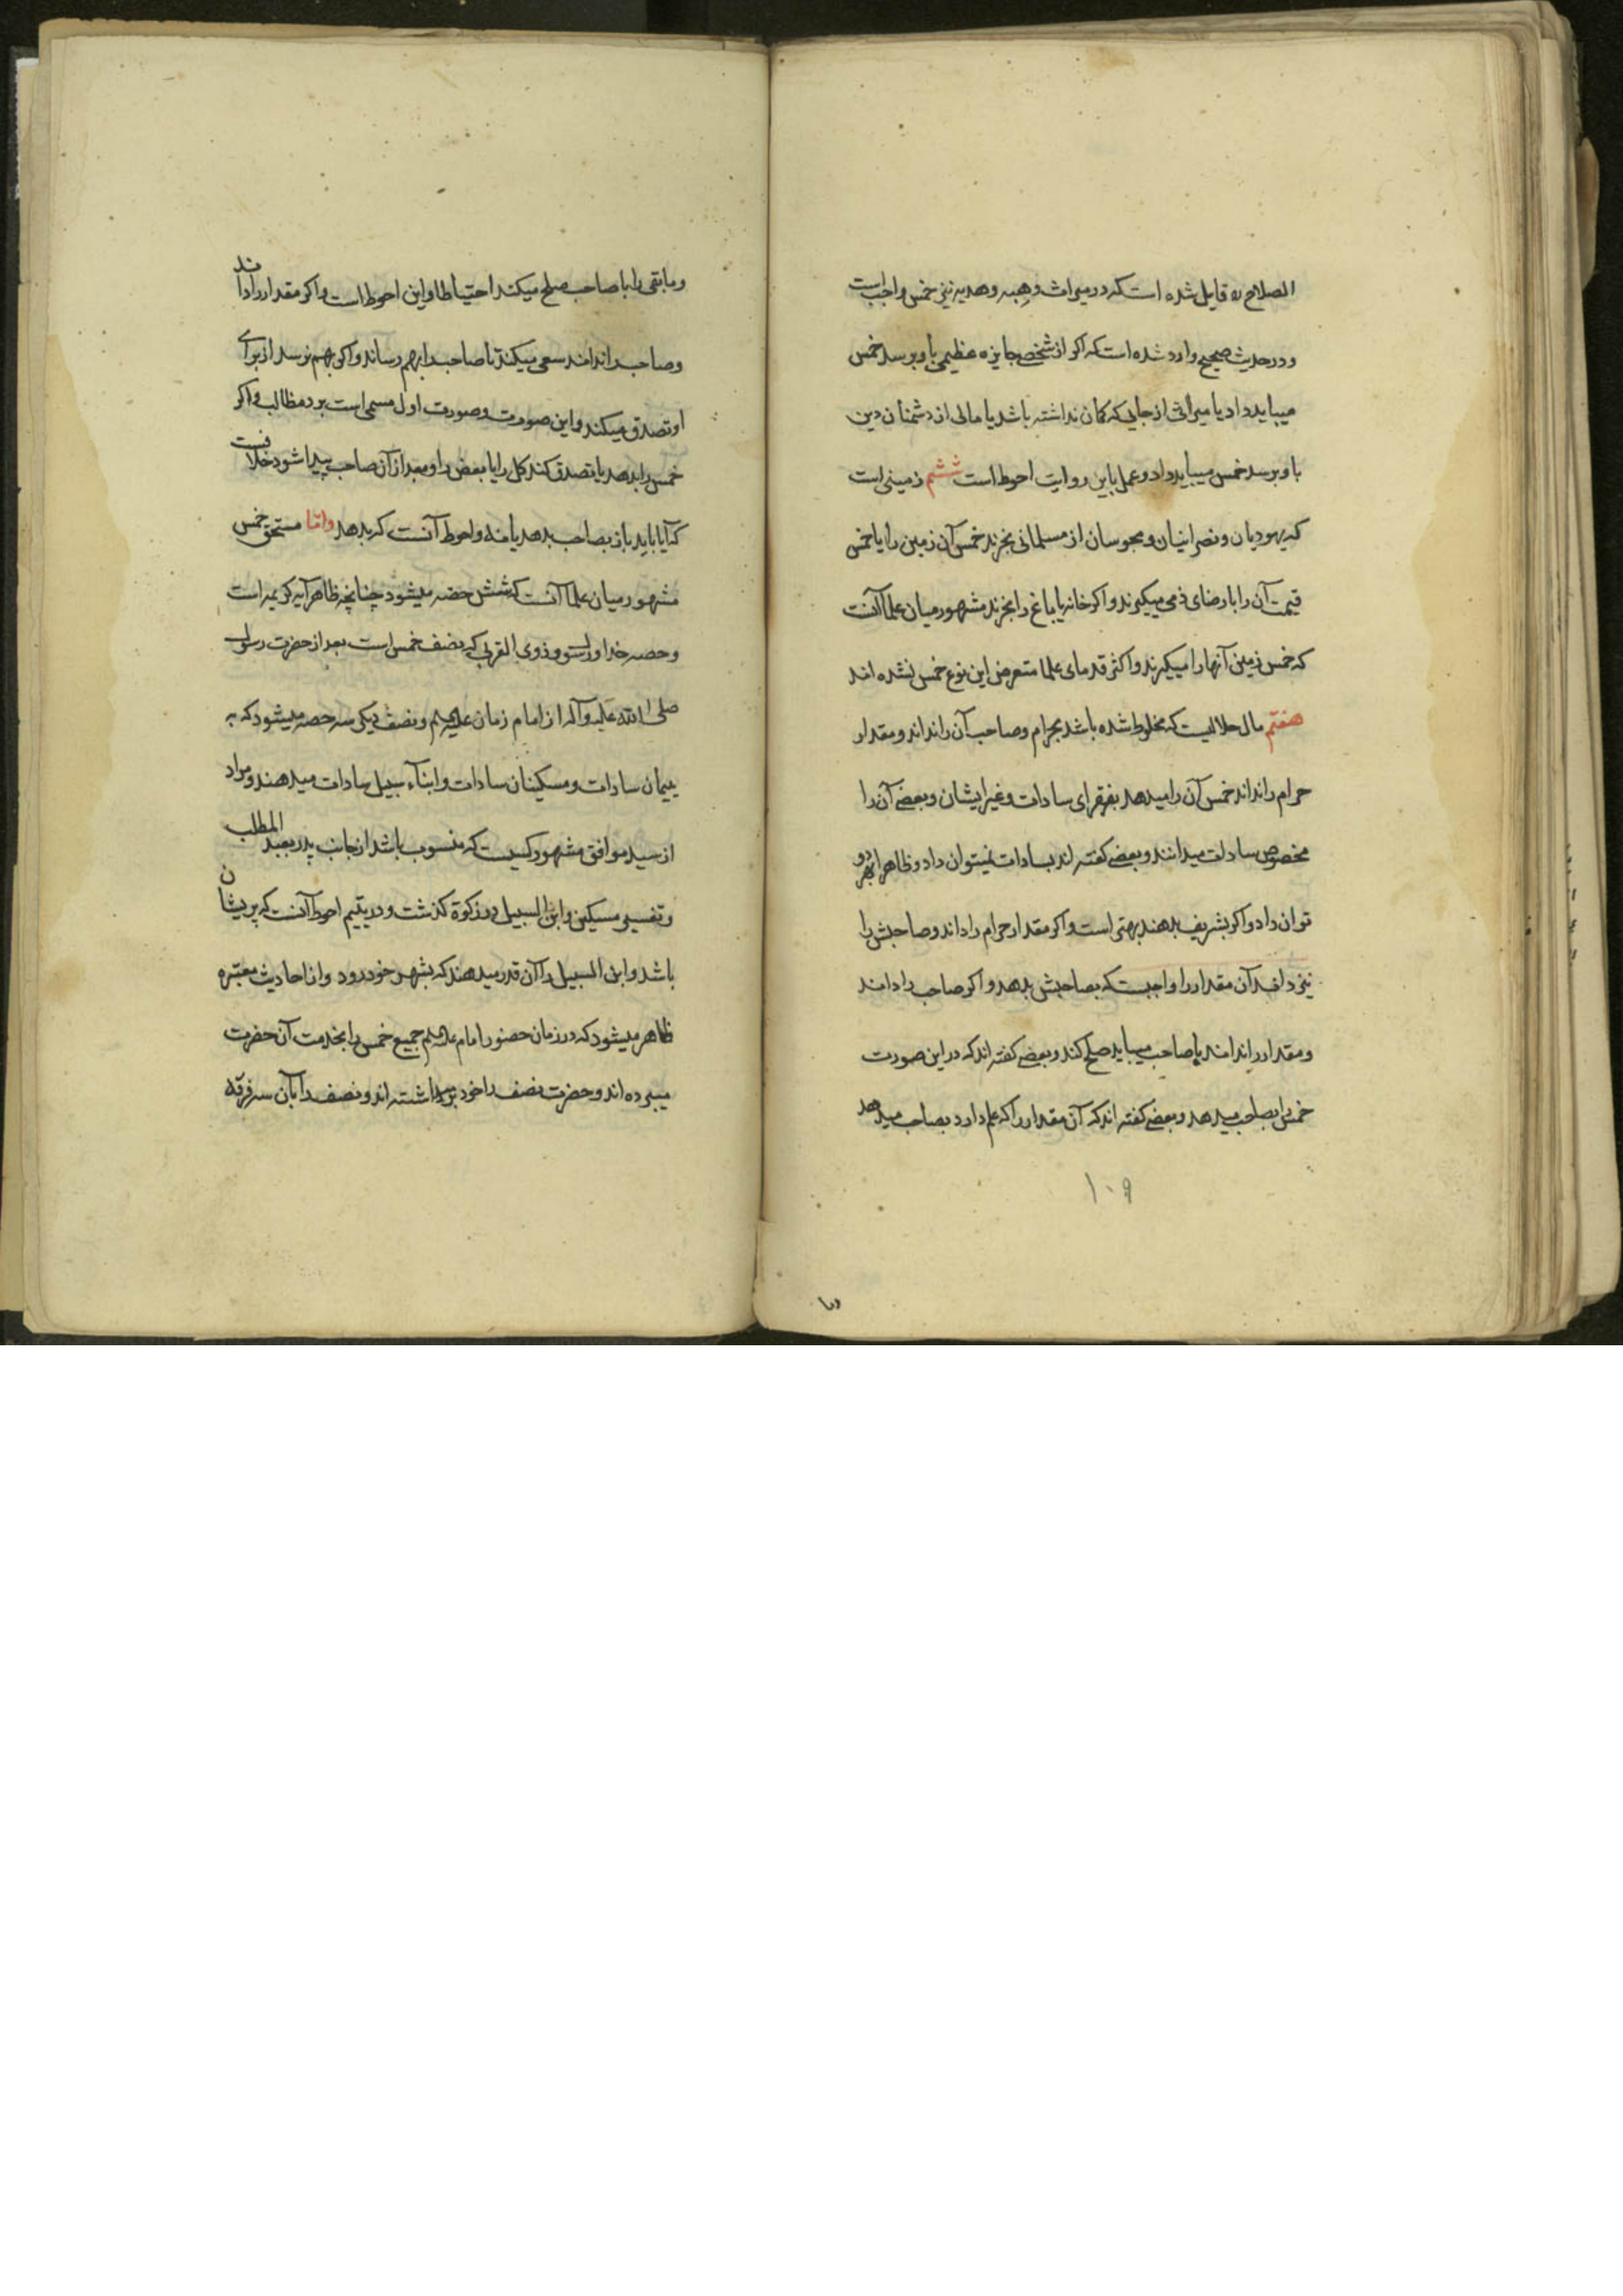 الصلاح ره قایل شده است که در میراث و هبه و هدیه نیز خمس واجب است
و در حدیث صحیح وارد شده است که اکر از شخص جایزه عظیمی باو برسد خمس
میباید داد یا میراثی از جایی که کمان نداشته باشد یا مالی از دشمنان دین
باو برسد خمس میباید داد و عمل باین روایت احوط است ششم زمینی است
که یهودیان و نصرانیان و مجوسان از مسلمانی بخرند خمس آن زمین را یا خمس
قیمت آن را با رضای ذمی میکیرند و اکر خانه یا باغ را بخرند مشهور میان علما آنست
که خمس زمین آنها را میکیرند و اکثر قدمای علما متعرض این نوع خمس نشده اند
هفتم مال حلالیست که مخلوط شده باشد بحرام و صاحب آن را نداند و مقدار
حرام را نداند خمس آن را میدهد بفقرای سادات و غیر ایشان و بعضی آن را
مخصوص سادات میدانند و بعضی کفته اند بسادات نمیتوان داد و ظاهرا بهر دو
توان داد و اکر بشریف بدهند بهتر است و اکر مقدار حرام را داند و صاحبش را
نیز داند آن مقدار را واجبست که بصاحبش بدهد و اکر صاحب را داند
و مقدار را نداند با صاحب میباید صلح کند و بعضی کفته اند که در این صورت
خمس را بصاحب میدهد و بعضی کفته اند که آن مقدار را که علم دارد بصاحب میدهد
۱۰۹
وما
و مابقی را با صاحب صلح میکند احتیاطا و این احوط است و اکر مقدار را داند
و صاحب را نداند سعی میکند تا صاحب را بهم رساند و اکر بهم نرسد از برای
او تصدق میکند و این صورت و صورت اول مسمی است برد مظالم و اکر
خمس را بدهد یا تصدق کند کل را یا بعض را و بعد از آن صاحب پیدا شود خلافست
که آیا باید باز بصاحب بدهد یا نه و احوط آنست که بدهد و اما مستحق خمس
مشهور میان علما آنست که شش حصه میشود چنانچه ظاهر آیه کریمه است
و حصه خدا و رسول و ذوی القربی که نصف خمس است بعد از حضرت رسول
صلی الله علیه و آله از امام زمان علیه السلم و نصف دیکر سه حصه میشود که به
یتیمان سادات و مسکینان سادات و ابنآء سبیل سادات میدهند و مراد
از سید موافق مشهور کسیست که منسوب باشد از جانب پدر بعبد المطلب
و تفسیر مسکین و ابن السبیل در زکوة کذشت و در یتیم احوط آنست که پریشان
باشد و ابن السبیل را آن قدر میدهند که بشهر خود رود و از احادیث معتبره
ظاهر میشود که در زمان حضور امام علیه السلم جمیع خمس را بخدمت آن حضرت
میبرده اند و حضرت نصف را خود برمیداشته اند و نصف را بآن سه فرقه